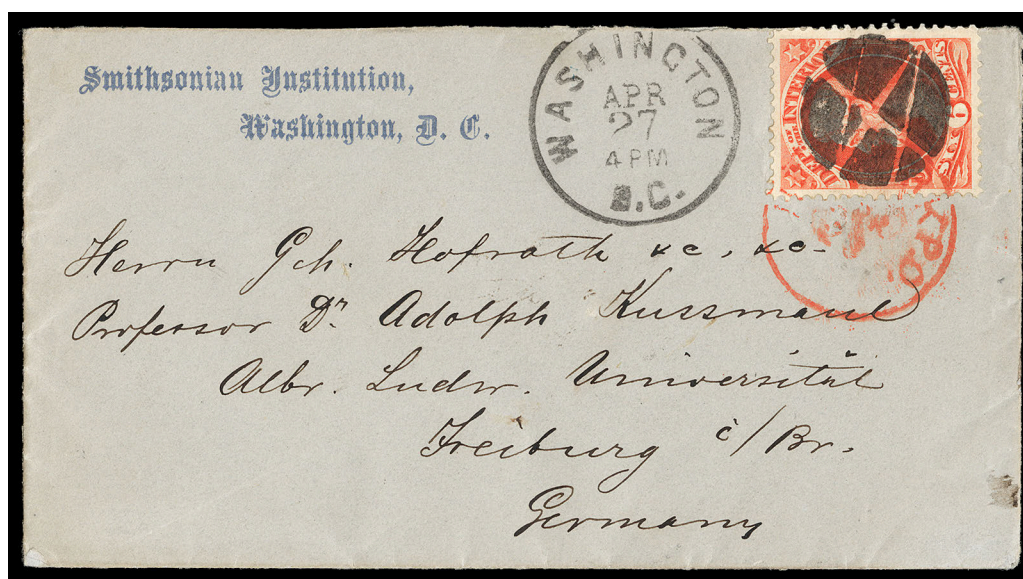 Smithsonian Institution,
Washington, D. C.
WASHINGTON
APR
27
4 PM
D.C.
DEPT. OF THE INTERIOR
Herrn Geh. Hofrath &c, &c-
Professor Dr. Adolph Kussmaul
Albr. Ludw. Universität
Freiburg i/Br.
Germany